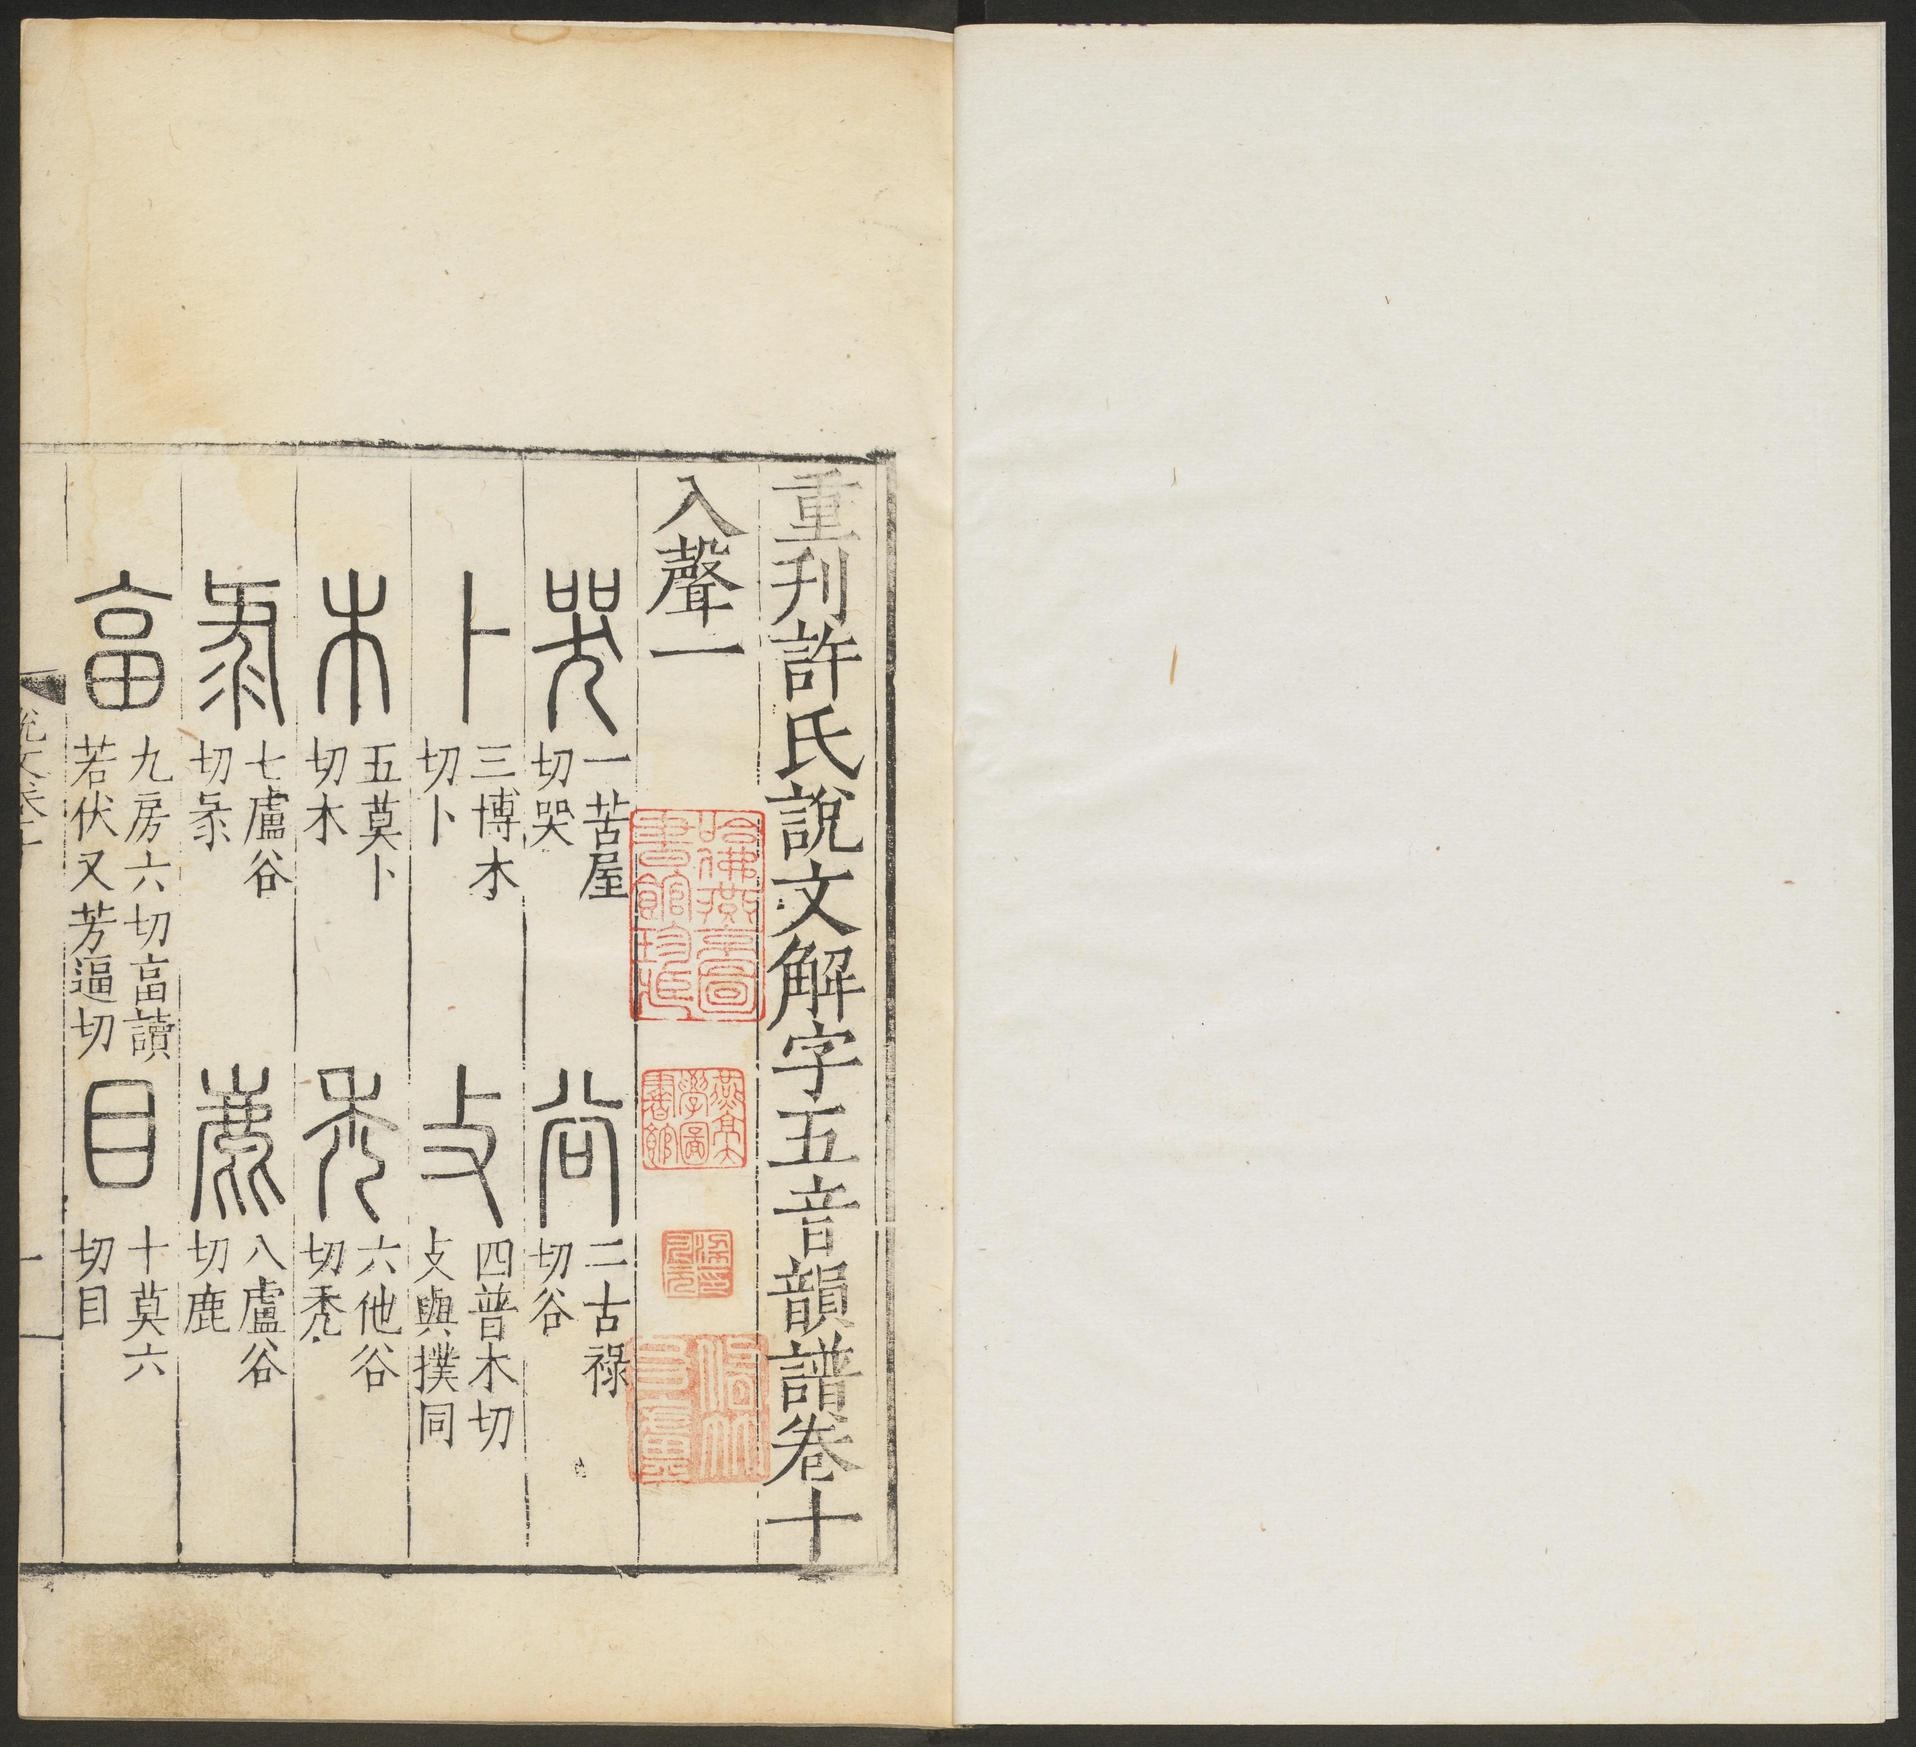 重刊許氏說文解字五音韻譜卷十
入聲一
哭
一苦屋
切哭
谷
二古祿
切谷
卜
三博木
切卜
攴
四普木切
攴與撲同
木
五莫卜
切木
禿
六他谷
切禿
彔
七盧谷
切彔
鹿
八盧谷
切鹿
畗
九房六切畗讀
若伏又芳逼切
目
十莫六
切目
說文卷十
一
哈佛燕京圖
書館珍藏
燕京大
學圖
書館